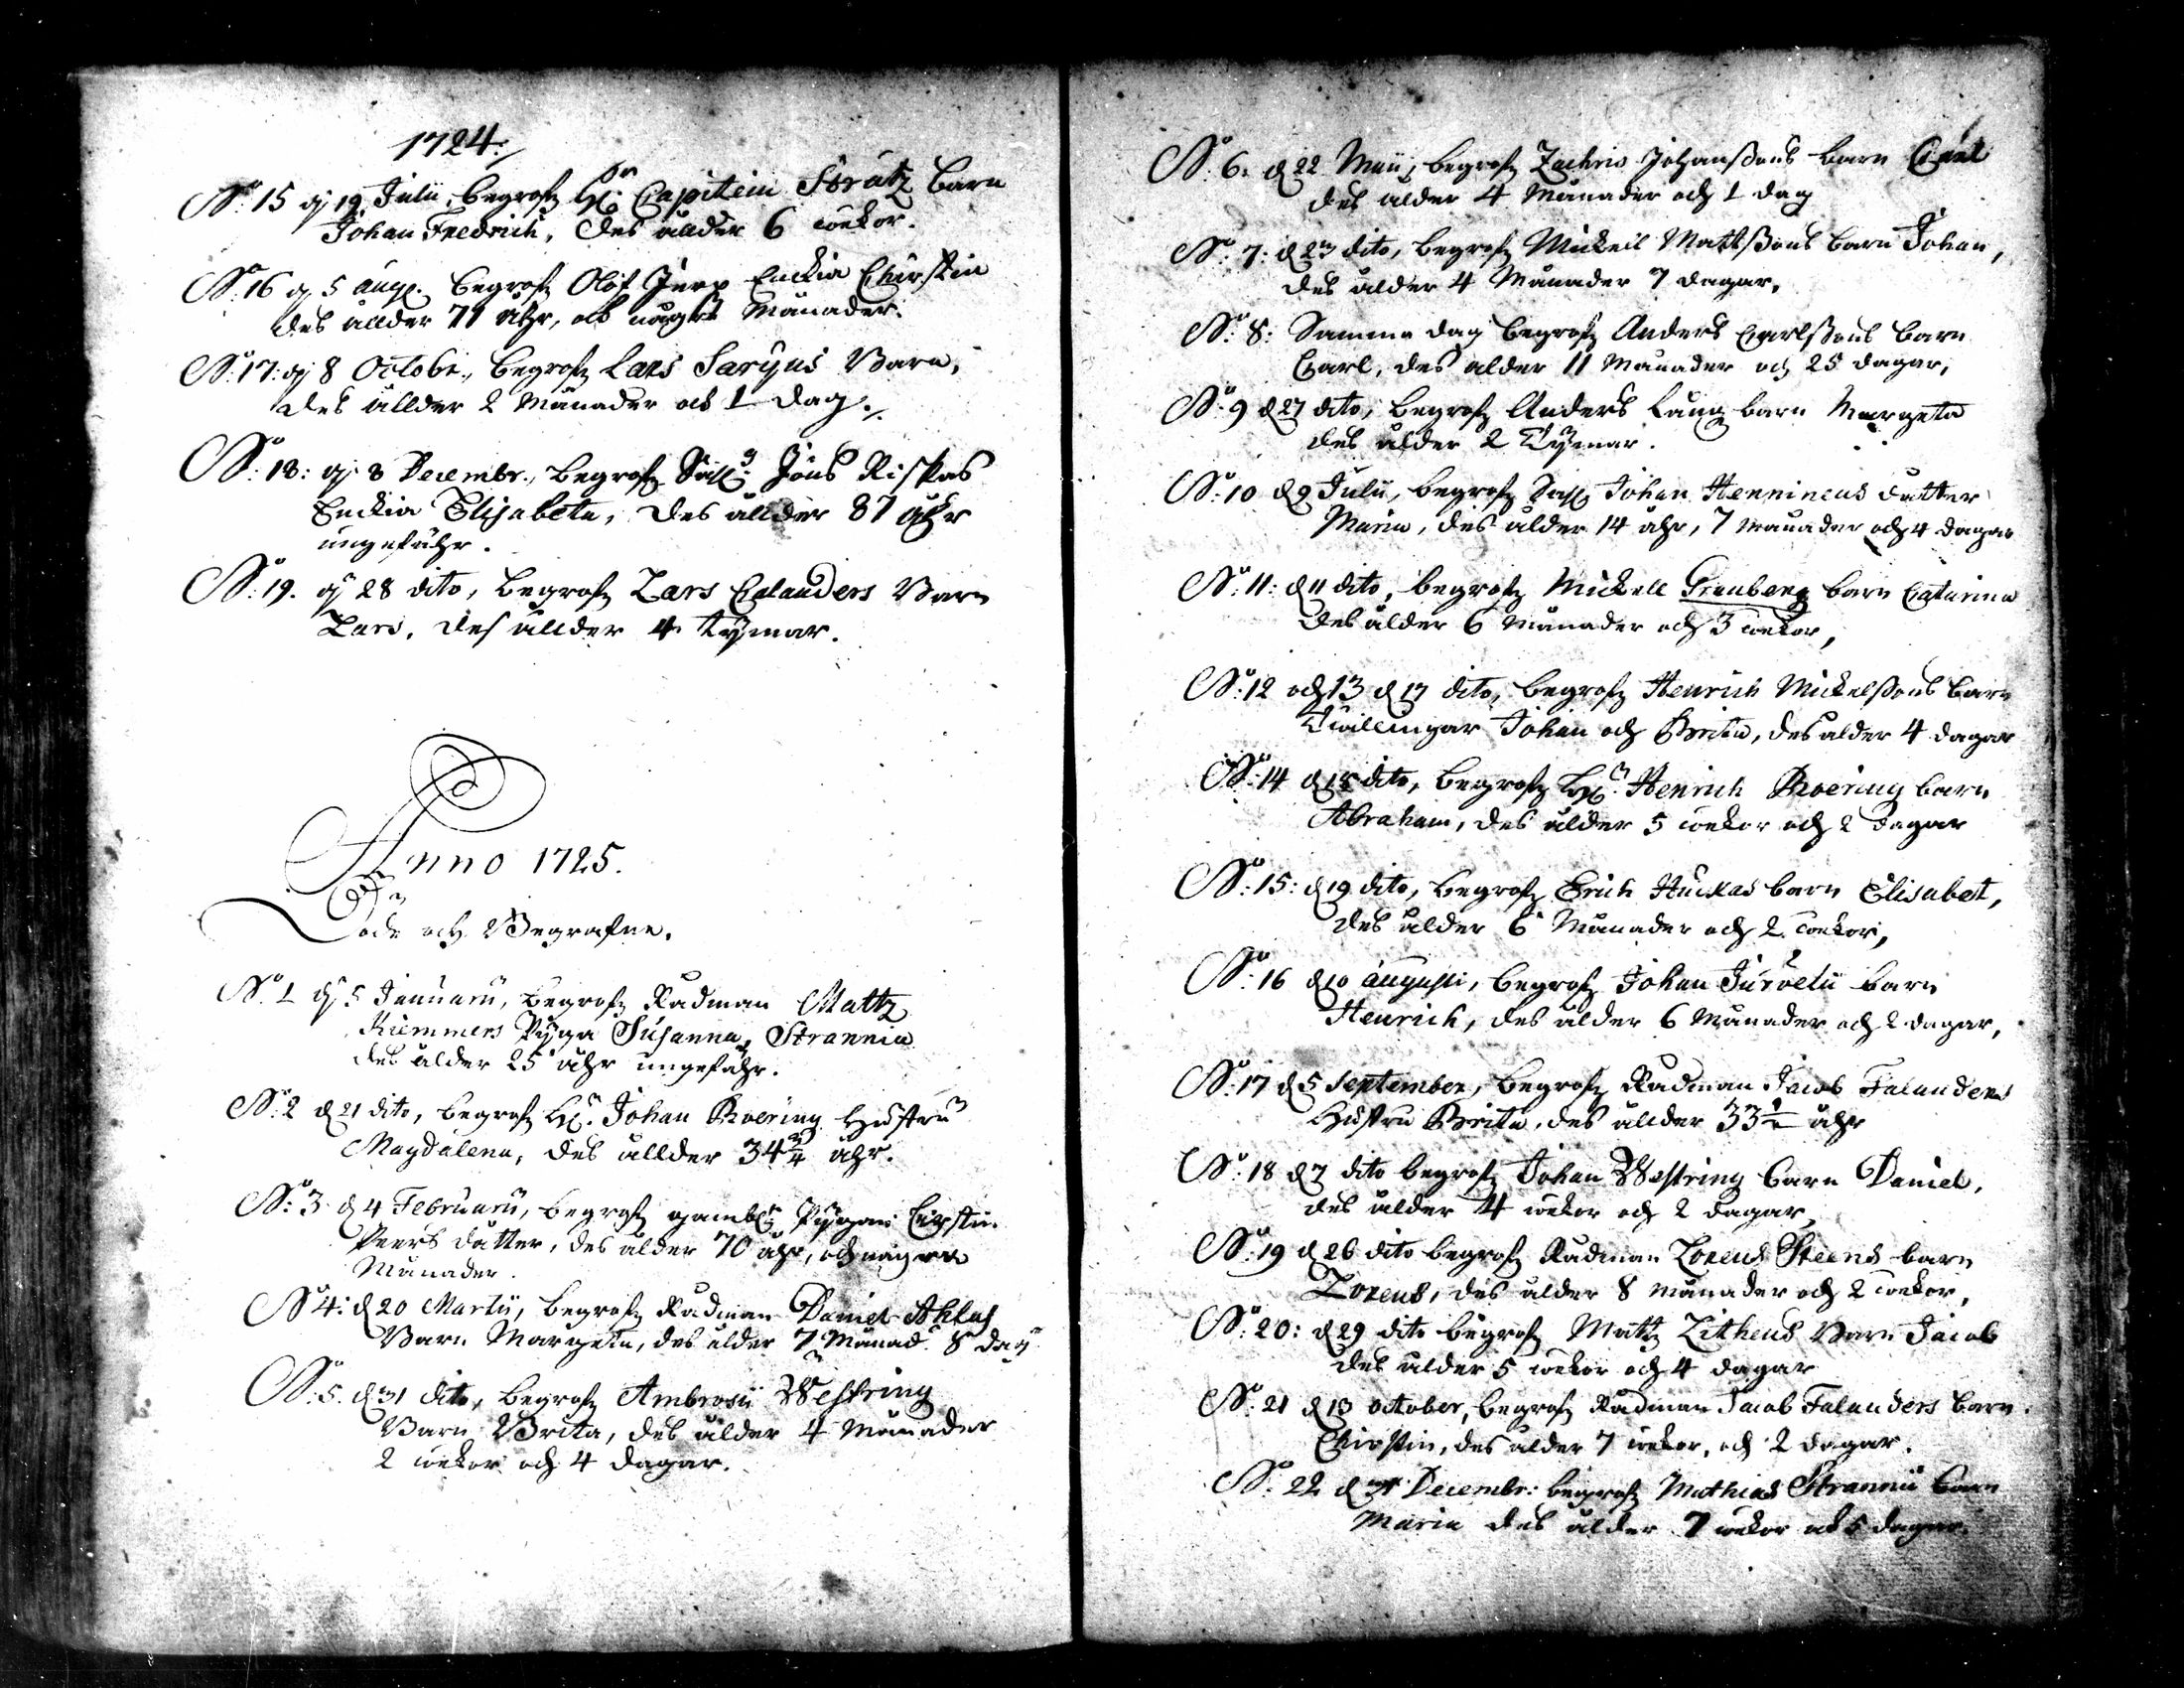 1724:
No: 15 dj 19 Julii, begrofz Hr: Capitein Strutz barn
Johan Fredrich, des ållder 6 wekor.
No: 16 dj 5 aug. begrofz Olof Jerp Enckia Chirstin
des ållder 71 åhr, ock någre Månader.
No: 17: dj 8 Octobr., begrofz Lars Saryns Barn,
des ållder 2 Månader ock 1 dag.
No: 18: dj 8 Decembr., begrofz Sahl: Jöns Riskas
Enckia Elisabeta, des ållder 87 åhr
ungefähr.
No: 19. dj 28 dito, begrofz Lars Calanders Barn
Lars, des ållder 4 tijmar.
Anno 1725.
Döde och Begrafne.
No: 1 dj 5 Januarii, begrofz Rådman Mattz
Riemmers Pyga Susanna, Strannia
des ålder 25 åhr ungefähr.
No: 2 d 21 dito, begrofz Hr: Johan Roering Hustru
Magdalena, des ållder 34 3/4 åhr.
No: 3 d 4 Februarii, begrofz gambla Pygan Cirstin
Peers dotter, des ålder 70 åhr, och någre
Månader.
No 4: d 20 Martii, begrofz Rådman Daniel Ahlas
Barn Margeta, des ålder 7 Månad. 8 dag.
No: 5. d 31 dito, begrofz Ambrosii Westring
Barn Brita, des ålder 4 Månader
2 wekor och 4 dagar.
No: 6. d 22 Maii, begrofz Zachris Johanßons barn Carl
des ålder 4 Månader och 1 dag
No: 7: d 23 dito, begrofz Mickell Mattßons barn Johan,
des ålder 4 Månader 7 dagar,
No: 8: Samma dag begrofz Anders Carlßons barn
Carl, des ålder 11 Månader och 25 dagar,
No: 9 d 27 dito, begrofz Anders Lang barn Margeta
des ålder 2 Tijmar.
No: 10 d 9 Julii, begrofz Sahl Johan Hennineus dotter
Maria, des ålder 14 åhr, 7 månader och 4 dagar
No: 11: d 11 dito, begrofz Mickell Granberg barn Catarina
des ålder 6 månader och 3 wekor,
No: 12 och 13 d 17 dito, begrofz Henrich Mickelßons barn
Twillingar Johan och Brita, des ålder 4 dagar
No: 14 d 18 dito, begrofz Hr: Henrich Roering barn
Abraham, des ålder 5 wekor och 2 dagar
No: 15: d 19 dito, begrofz Erich Huckas barn Elisabet,
des ålder 6 Månader och 2 wekor,
No: 16 d 10 augusti, begrofz Johan Jurvelii barn
Henrich, des ålder 6 Månader och 2 dagar,
No: 17 d 5 September, begrofz Rådman Jacob Falanders
Hustru Brita, des ållder 33 1/2 åhr
No: 18 d 7 dito begrofz Johan Westring barn Daniel,
des ålder 4 wekor och 2 dagar,
No: 19 d 26 dito begrofz Rådman Lorens Steens barn
Lorens, des ålder 8 månader och 2 wekor,
No: 20: d 29 dito begrofz Mattz Litheus Barn Jacob
des ålder 5 wekor och 4 dagar
No: 21 d 13 October, begrofz Rådman Jacob Falanders barn
Chirstin, des ålder 7 wekor, och 2 dagar.
No: 22 d Decembr: begrofz Mathias Strannii barn
Maria des ålder 7 wekor ock 5 dagar.